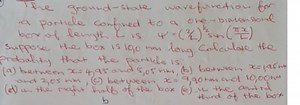 The ground-state wavefunction for
a particle confined to a one-dimensional
box of length L is Ψ = (2/L)^½ sin(πx/L)
Suppose the box is 10,0 nm long. Calculate the
probability that the particle is:
(a) between x = 4,95nm and 5,05nm (b) between x = 1,95nm
and 2,05nm, (c) between x = 9,90nm and 10,00nm
(d) in the right half of the box (e) in the central
third of the box